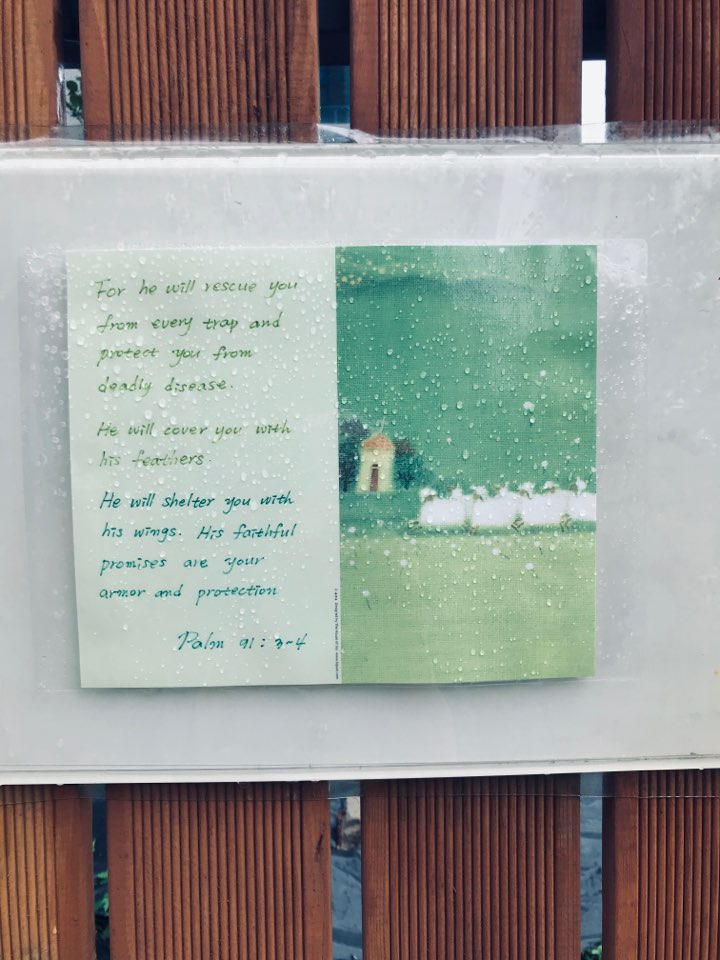 For he will rescue you
from every trap and
protect you from
deadly disease.
He will cover you with
his feathers.
He will shelter you with
his wings. His faithful
promises are your
armor and protection
Palm 91:3~4